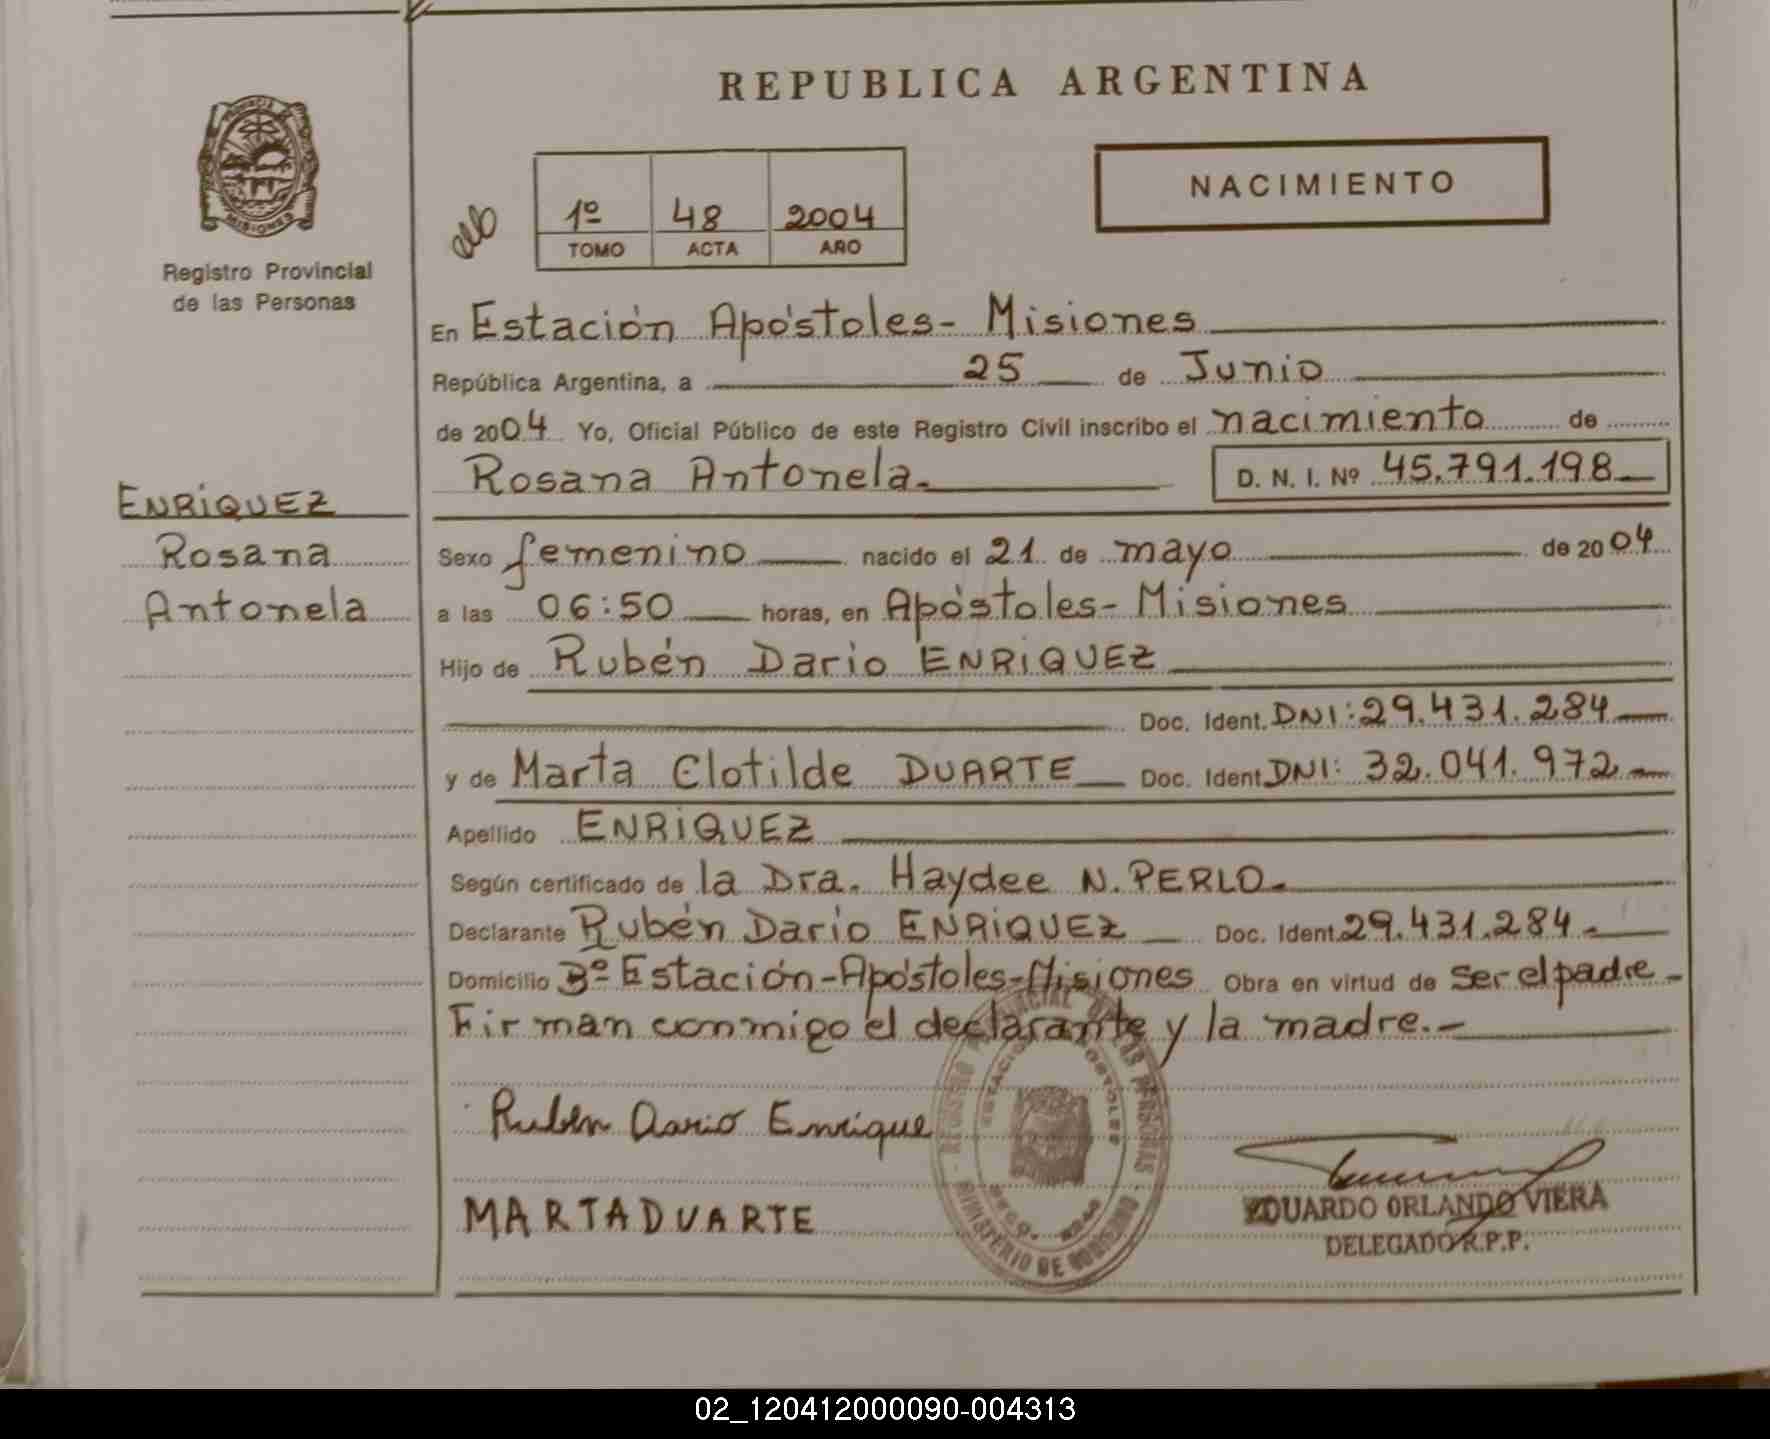 REPUBLICA ARGENTINA
NACIMIENTO
1º 48 2004
TOMO ACTA AÑO
Registro Provincial
de las Personas
En Estación Apóstoles- Misiones
República Argentina, a 25 de Junio
de 2004 Yo, Oficial Público de este Registro Civil inscribo el nacimiento de
Rosana Antonela. D. N. I. Nº 45.791.198
ENRIQUEZ
Rosana
Antonela
Sexo femenino nacido el 21 de mayo de 2004
a las 06:50 horas, en Apóstoles- Misiones
Hijo de Rubén Dario ENRIQUEZ
Doc. Ident. DNI: 29.431.284
y de Marta Clotilde DUARTE Doc. Ident. DNI: 32.041.972
Apellido ENRIQUEZ
Según certificado de la Dra. Haydee N. PERLO.
Declarante Rubén Dario ENRIQUEZ Doc. Ident. 29.431.284.
Domicilio Bº Estación-Apóstoles-Misiones Obra en virtud de ser el padre
Firman conmigo el declarante y la madre.-
Ruben Dario Enrique
MARTA DUARTE
REGISTRO PROVINCIAL DE LAS PERSONAS
MINISTERIO DE GOBIERNO
EDUARDO ORLANDO VIERA
DELEGADO R.P.P.
02_120412000090-004313